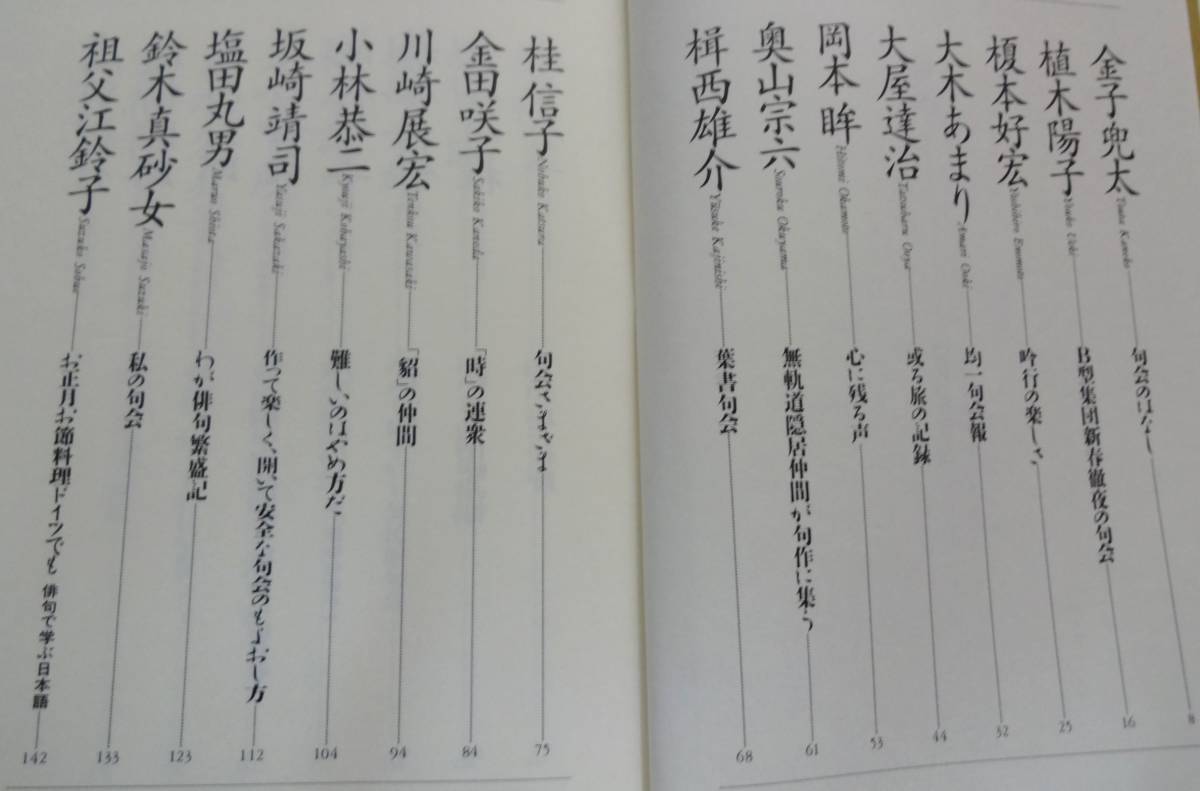 金子兜太 Touta Kaneko 句会のはなし 8
植木陽子 Youko Ueki B型集団新春徹夜の句会 16
榎本好宏 Yoshihiro Enomoto 吟行の楽しさ 25
大木あまり Amari Ooki 均一句会報 32
大屋達治 Tatsuharu Ooya 或る旅の記録 44
岡本眸 Hitomi Okamoto 心に残る声 53
奥山宗六 Souroku Okuyama 無軌道隠居仲間が句作に集う 61
楫西雄介 Yūsuke Kajinishi 葉書句会 68
桂信子 Nobuko Katsura 句会さまざま 75
金田咲子 Sakiko Kaneda 「時」の連衆 84
川崎展宏 Tenkou Kawasaki 「貂」の仲間 94
小林恭二 Kyouji Kobayashi 難しいのはやめ方だ 104
坂崎靖司 Yasuji Sakazaki 作って楽しく、開いて安全な句会のもよおし方 112
塩田丸男 Maruo Shiota わが俳句繁盛記 123
鈴木真砂女 Masajo Suzuki 私の句会 133
祖父江鈴子 Suzuko Sobue お正月お節料理ドイツでも 俳句で学ぶ日本語 142